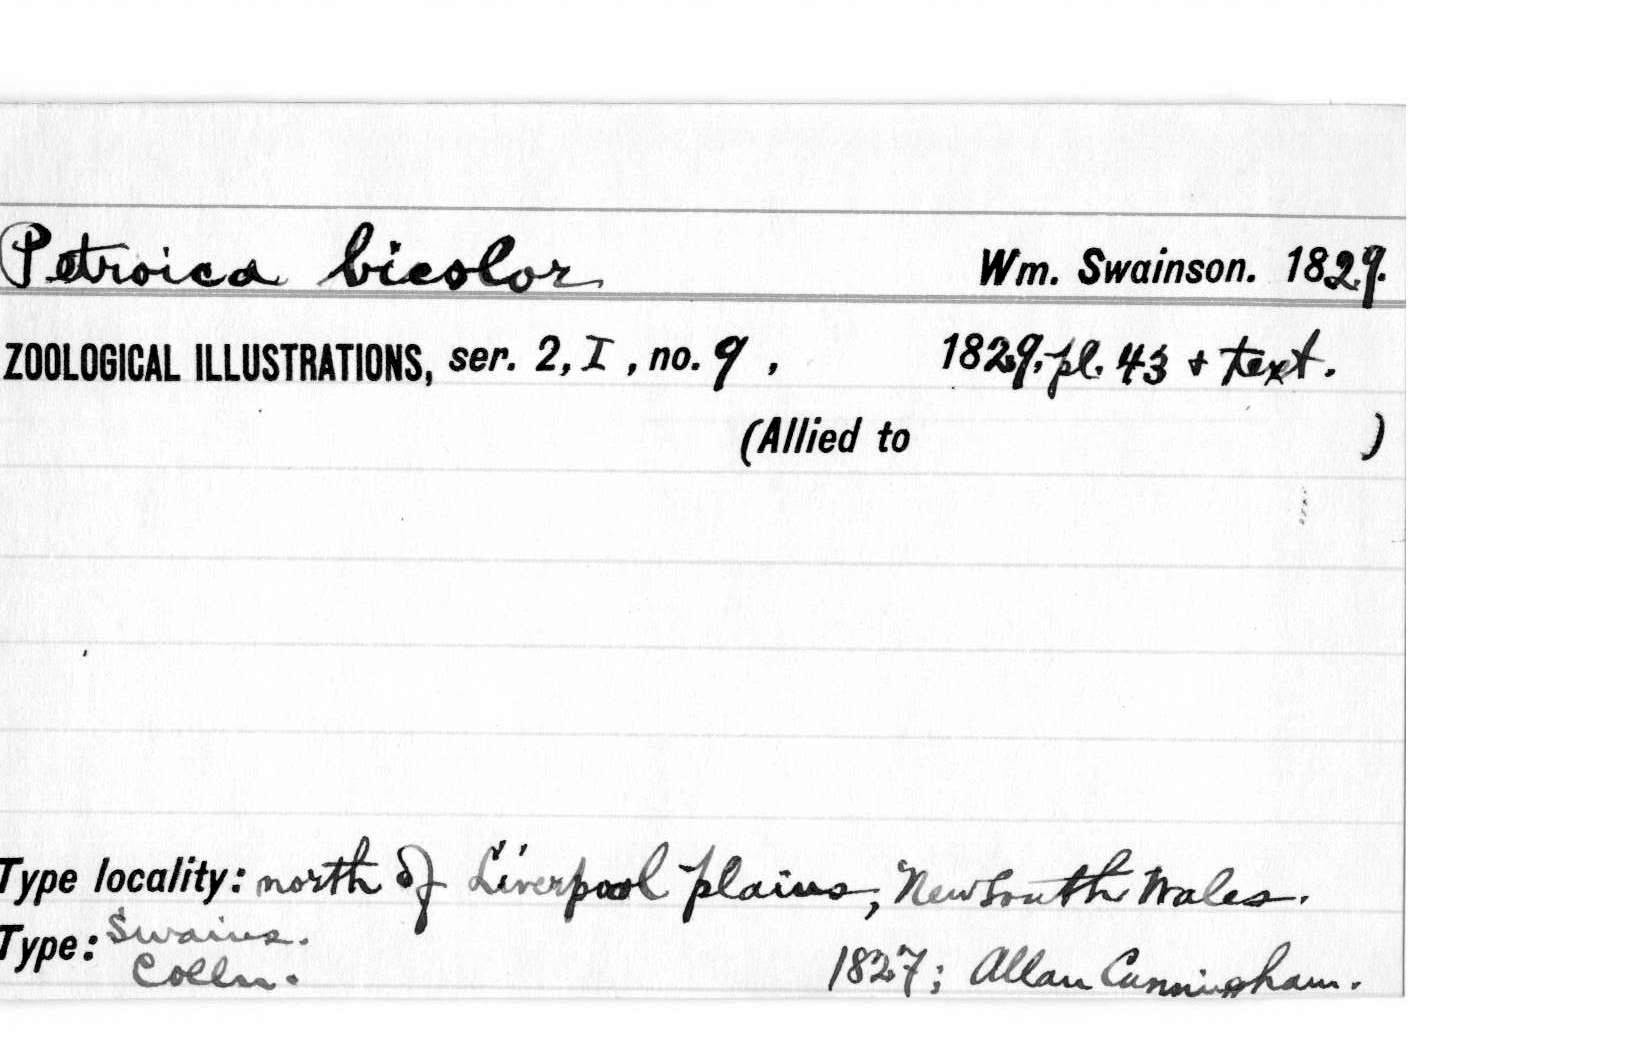 Petroica bicolor Wm. Swainson. 1829.
ZOOLOGICAL ILLUSTRATIONS, ser. 2, I, no. 9, 1829. pl. 43 + text.
(Allied to )
Type locality: north of Liverpool plains, New South Wales.
Type: Swains.
Colln. 1827; Allan Cunningham.